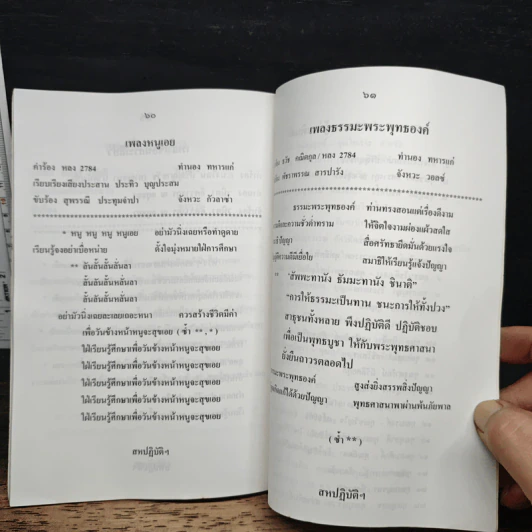 ๖๐
เพลงหนูเอย
คำร้อง หลง 2784 ทำนอง ทหารแก่
เรียบเรียงเสียงประสาน ประทิว บุญประสม
ขับร้อง สุพรรณี ประทุมจำปา จังหวะ กัวลาซ่า
* หนู หนู หนู หนูเอย อย่ามัวนิ่งเฉยหรือทำดูดาย
เรียนรู้จงอย่าเบื่อหน่าย ตั้งใจมุ่งหมายใฝ่การศึกษา
** ลั้นลั้นลั้นลั่นลา
ลั้นลั้นลั้นลั้นหล่า
ลั้นลั้นลั้นลั้นหล่า
อย่ามัวนิ่งเฉยละเลยเถอะหนา ควรสร้างชีวิตมีค่า
เพื่อวันข้างหน้าหนูจะสุขเอย (ซ้ำ **,*)
ใฝ่เรียนรู้ศึกษาเพื่อวันข้างหน้าหนูจะสุขเอย
ใฝ่เรียนรู้ศึกษาเพื่อวันข้างหน้าหนูจะสุขเอย
ใฝ่เรียนรู้ศึกษาเพื่อวันข้างหน้าหนูจะสุขเอย
ใฝ่เรียนรู้ศึกษาเพื่อวันข้างหน้าหนูจะสุขเอย
ใฝ่เรียนรู้ศึกษาเพื่อวันข้างหน้าหนูจะสุขเอย
สหปฏิบัติฯ
๖๑
เพลงธรรมะพระพุทธองค์
คณิตกุล/หลง 2784 ทำนอง ทหารแก่
พัชราพรรณ สารปารัง จังหวะ วอลซ์
ธรรมะพระพุทธองค์ ท่านทรงสอนแต่เรื่องดีงาม
ละความชั่วต่ำทราม ให้จิตใจงามผ่องแผ้วสดใส
ปัญญา สื่อศรัทธายึดมั่นด้วยแรงใจ
สมาธิให้เรียนรู้แจ้งปัญญา
** "สัพพะทานัง ธัมมะทานัง ชินาติ"
"การให้ธรรมะเป็นทาน ชนะการให้ทั้งปวง"
สาธุชนทั้งหลาย พึงปฏิบัติดี ปฏิบัติชอบ
เพื่อเป็นพุทธบูชา ให้กับพระพุทธศาสนา
ยั่งยืนถาวรตลอดไป
พระพุทธองค์ สูงส่งยิ่งสรรพสิ่งปัญญา
ได้ด้วยปัญญา พุทธศาสนาพาผ่านพ้นภัยพาล
(ซ้ำ **)
สหปฏิบัติฯ